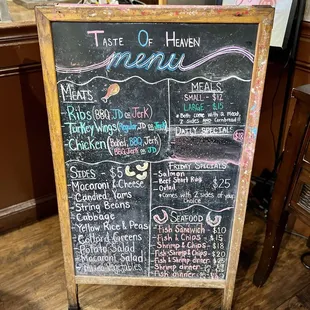 Taste Of Heaven
menu
Meats
Ribs (BBQ, JD or Jerk)
Turkey Wings (Regular, JD or Jerk)
Chicken (Baked, BBQ, Fried
BBQ, Jerk or JD)
Meals
Small - $12
Large - $15
*Both come with a Meat,
2 sides and Cornbread*
Daily Special
$18
Sides - $5
- Macaroni & Cheese
- Candied Yams
- String Beans
- Cabbage
- Yellow Rice & Peas
- Collard Greens
- Potato Salad
- Macaroni Salad
- Mixed Vegetables
Friday Specials
- Salmon
- Beef Short Ribs
- Oxtail
$25
*Comes with 2 sides of your
choice*
Seafood
- Fish Sandwich - $10
- Fish & Chips - $15
- Shrimp & Chips - $16
- Fish, Shrimp & Chips - $18
- Shrimp dinner - $20
- Fish dinner -